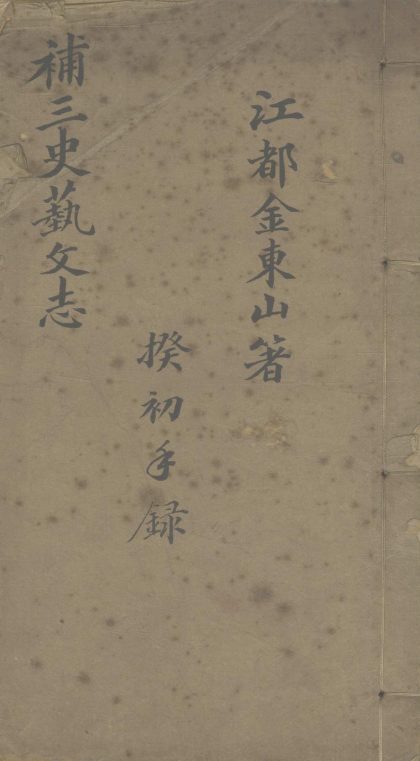 江都金東山箸
揆初手録
補三史藝文志